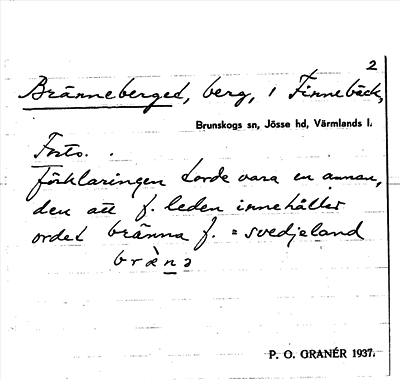 2
Bränneberget, berg, i Finnebäck,
Brunskogs sn, Jösse hd, Värmlands l.
Forts.
förklaringen torde vara en annan,
den att f. leden innehåller
ordet bränna f. = svedjeland
bræ̀nə
P. O. GRANÉR 1937.